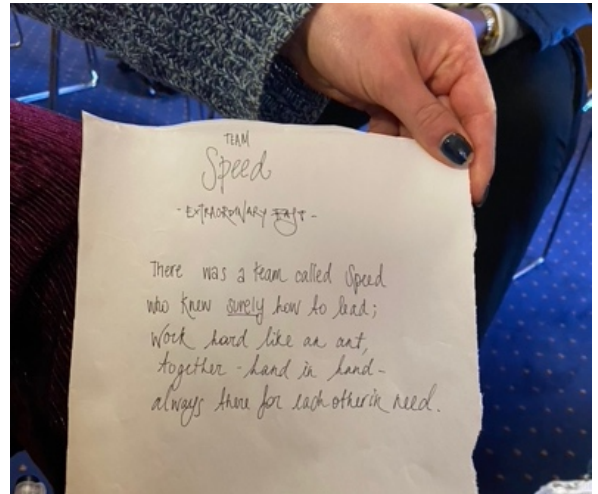 TEAM
Speed
- EXTRAORDINARY FAST -
There was a team called Speed
who knew surely how to lead;
Work hard like an ant,
together - hand in hand -
always there for each other in need.